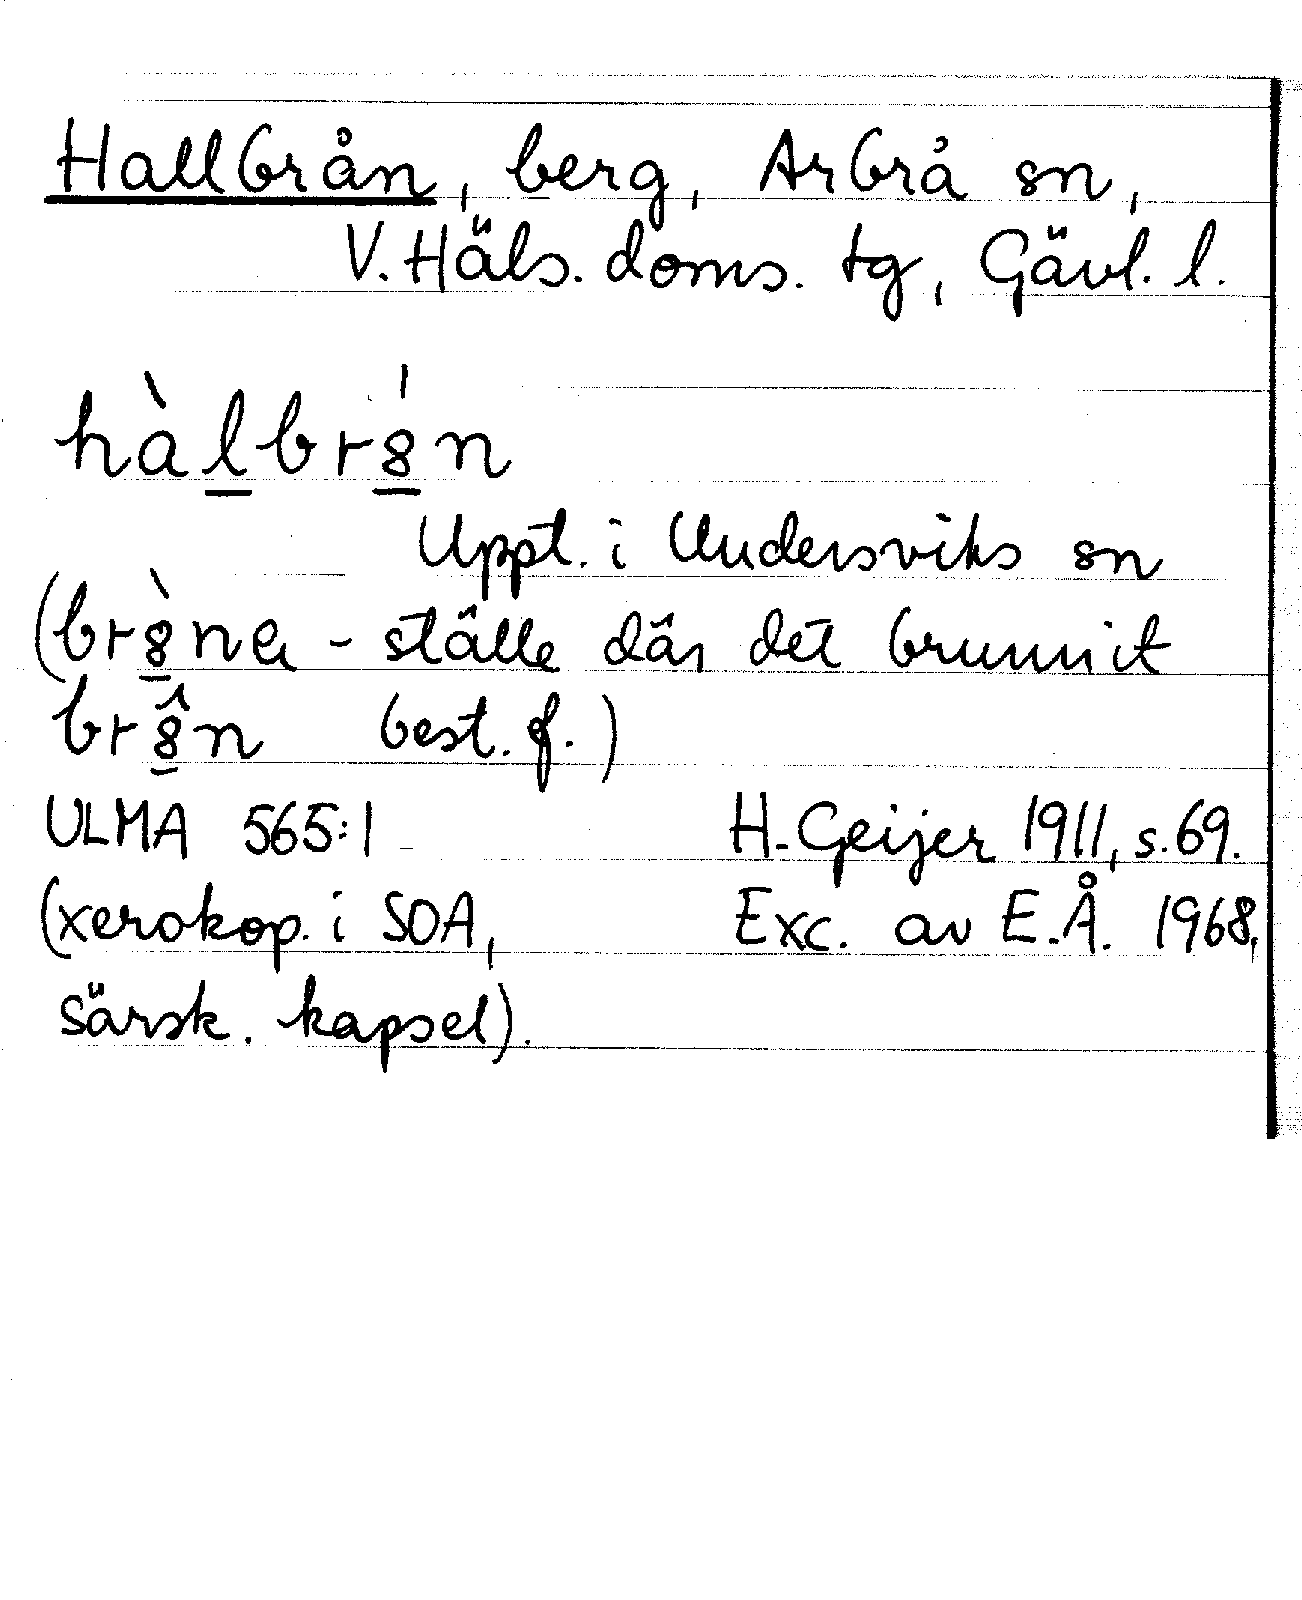 Hallbrån, berg, Arbrå sn,
V. Häls. doms. tg, Gävl. l.
hàlbr8́n
Uppt. i Undersviks sn
(br8̀na - ställe där det brunnit
br8̂n best. f.)
ULMA 565:1 H. Geijer 1911, s. 69.
(xerokop. i SOA, Exc. av E.Å. 1968,
särsk. kapsel).